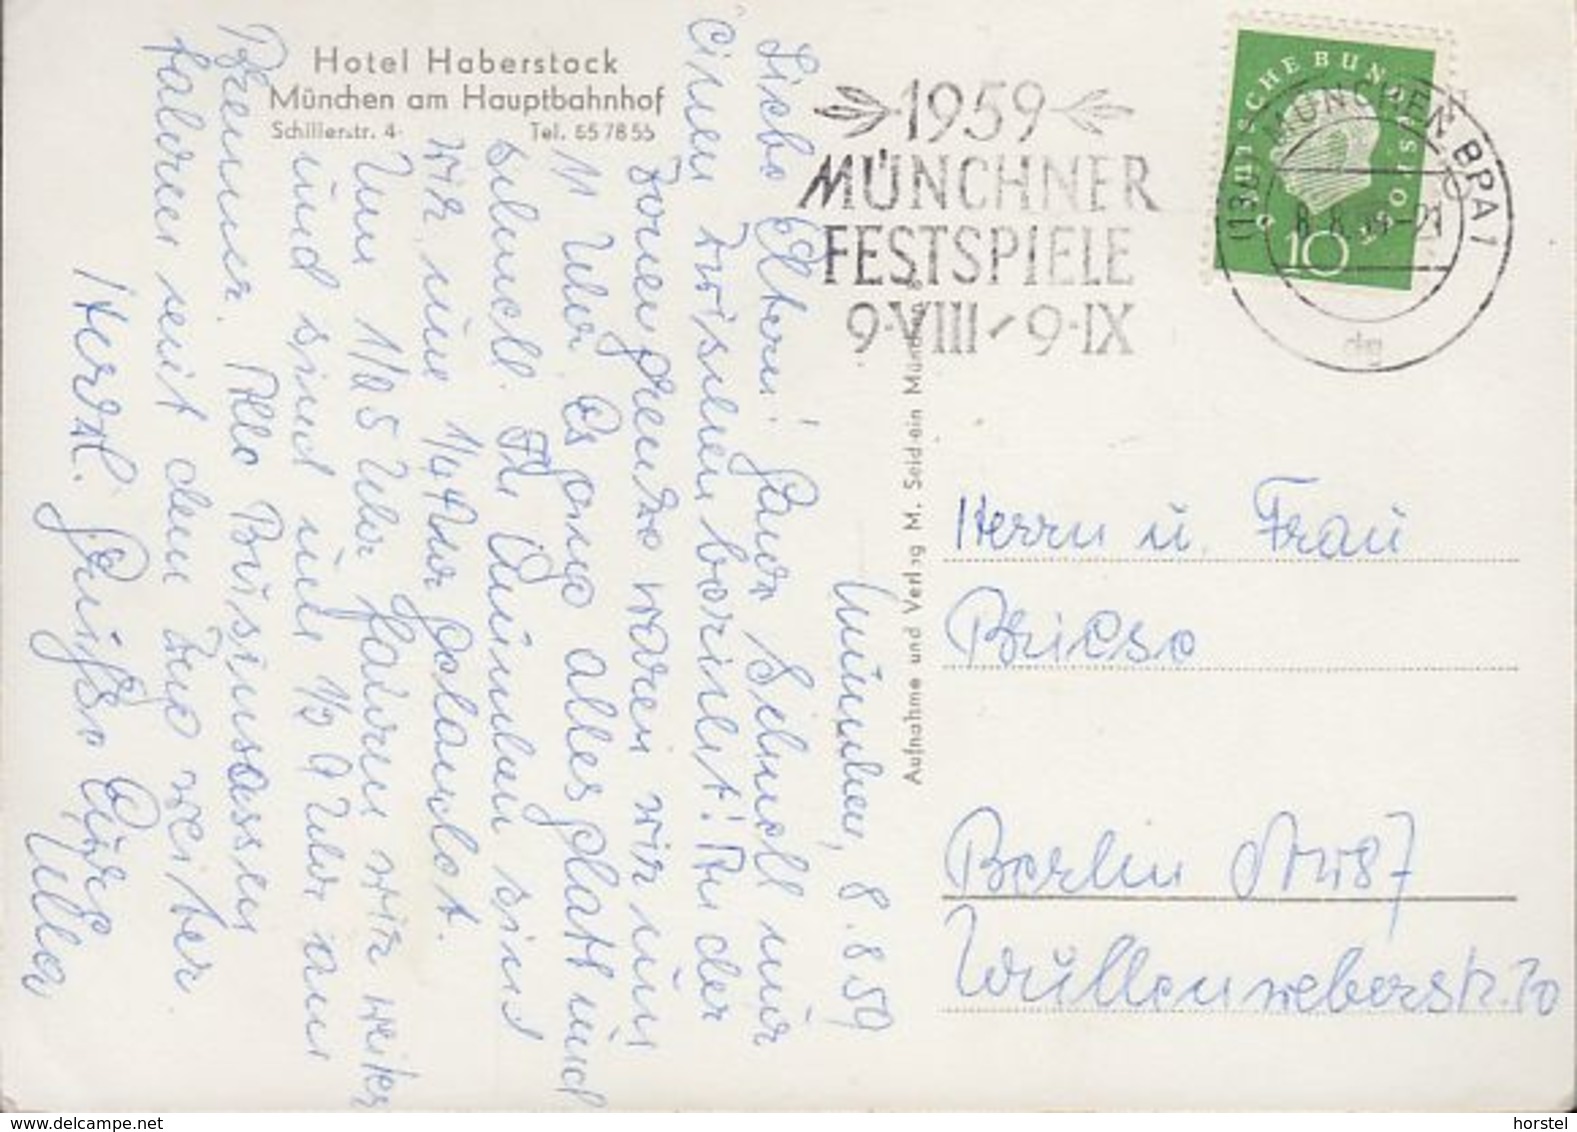 Hotel Haberstock
München am Hauptbahnhof
Schillerstr. 4 Tel. 557855
1959
MÜNCHNER
FESTSPIELE
9·VIII - 9·IX
DEUTSCHE BUNDESPOST
10
(13b) MÜNCHEN BPA 1
8.8.59-21
dg
Aufnahme und Verlag M. Seidlein München
München, 8.8.59
Liebe Eltern! Ganz schnell nur
einen Zwischenbericht! An der
Zonengrenze waren wir um
11 Uhr. Es ging alles glatt und
schnell. In München sind
wir um 1/4 4 Uhr gelandet.
Um 1/2 5 Uhr fahren wir weiter
und sind um 1/2 9 Uhr am
Brenner. Alle Businsassen
fahren mit dem Zug weiter
Herzl. Grüße Eure
Ulla
Herrn u. Frau
Briese
Berlin NW 87
Wullenweberstr. 10
www.delcampe.net
horstel